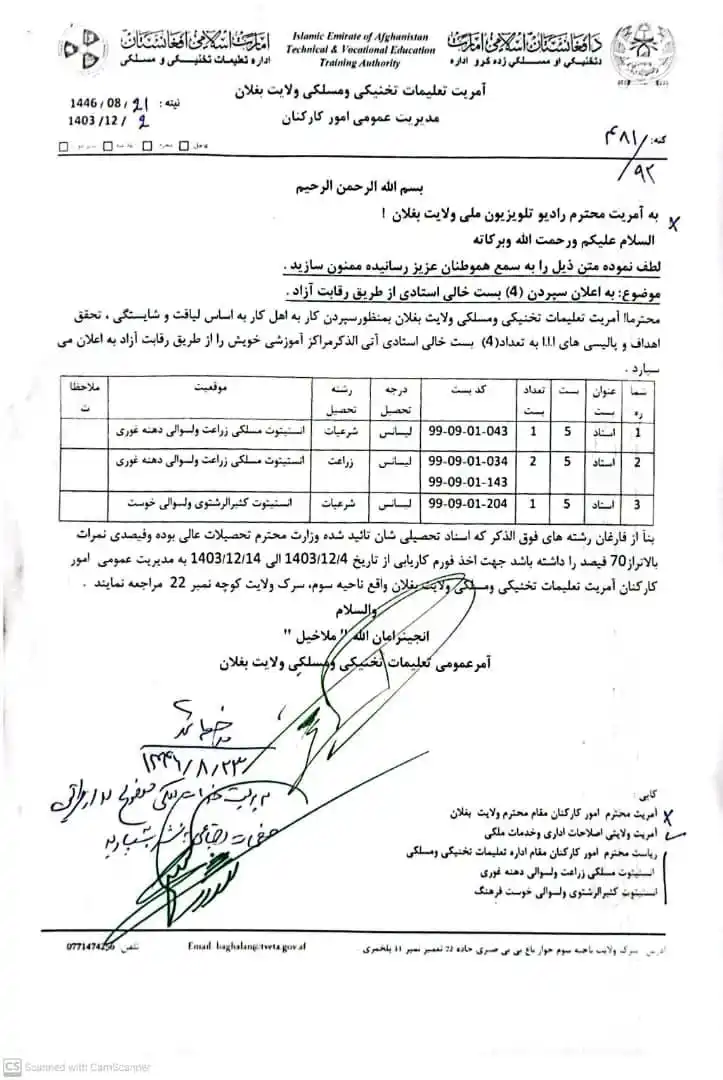 د افغانستان اسلامي امارت
د تخنیکي او مسلکي زده کړو اداره
Islamic Emirate of Afghanistan
Technical & Vocational Education
Training Authority
امارت اسلامی افغانستان
اداره تعلیمات تخنیکی و مسلکی
آمریت تعلیمات تخنیکی ومسلکی ولایت بغلان
مدیریت عمومی امور کارکنان
نېټه : 21 / 08 / 1446
2 / 12 / 1403
ګڼه: ۴۸۱/
۹۲
بسم الله الرحمن الرحیم
به آمریت محترم رادیو تلویزیون ملی ولایت بغلان !
السلام علیکم ورحمت الله وبرکاته
لطف نموده متن ذیل را به سمع هموطنان عزیز رسانیده ممنون سازید .
موضوع: به اعلان سپردن (4) بست خالی استادی از طریق رقابت آزاد .
محترما! آمریت تعلیمات تخنیکی ومسلکی ولایت بغلان بمنظورسپردن کار به اهل کار به اساس لیاقت و شایستگی ، تحقق
اهداف و پالیسی های ا.ا.ا به تعداد(4) بست خالی استادی آتی الذکرمراکز آموزشی خویش را از طریق رقابت آزاد به اعلان می
سپارد .
شماره | عنوان بست | بست | تعداد بست | کد بست | درجه تحصیل | رشته تحصیل | موقعیت | ملاحظات
1 | استاد | 5 | 1 | 99-09-01-043 | لیسانس | شرعیات | انستیتوت مسلکی زراعت ولسوالی دهنه غوری
2 | استاد | 5 | 2 | 99-09-01-034 99-09-01-143 | لیسانس | زراعت | انستیتوت مسلکی زراعت ولسوالی دهنه غوری
3 | استاد | 5 | 1 | 99-09-01-204 | لیسانس | شرعیات | انستیتوت کثیرالرشتوی ولسوالی خوست
بنآ از فارغان رشته های فوق الذکر که اسناد تحصیلی شان تائید شده وزارت محترم تحصیلات عالی بوده وفیصدی نمرات
بالاتراز70 فیصد را داشته باشد جهت اخذ فورم کاریابی از تاریخ 1403/12/4 الی 1403/12/14 به مدیریت عمومی امور
کارکنان آمریت تعلیمات تخنیکی ومسلکی ولایت بغلان واقع ناحیه سوم، سرک ولایت کوچه نمبر 22 مراجعه نمایند .
والسلام
انجینرامان الله " ملاخیل "
آمرعمومی تعلیمات تخنیکی ومسلکی ولایت بغلان
۱۴۴۶/۸/۲۳
کاپی :
آمریت محترم امور کارکنان مقام محترم ولایت بغلان
آمریت ولایتی اصلاحات اداری وخدمات ملکی
ریاست محترم امور کارکنان مقام اداره تعلیمات تخنیکی ومسلکی
انستیتوت مسلکی زراعت ولسوالی دهنه غوری
انستیتوت کثیرالرشتوی ولسوالی خوست فرهنگ
آدرس : سرک ولایت ناحیه سوم جوار باغ بی بی صبری جاده 22 تعمیر نمبر 11 پلخمری .
Email baghalan@tveta.gov.af
تلفن 0771474256
CS Scanned with CamScanner